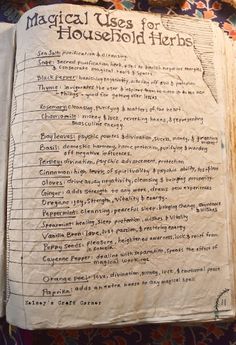 Magical Uses for
Household Herbs
Sea Salt: purification & cleansing
Sage: sacred purification herb, used to banish negative energies
& consecrate magical tools & spaces
Black Pepper: banishing negativity, warding off evil & protection
Thyme: invigorates the user & helping them to let go of
things - good for getting over losses
Rosemary: cleansing, purifying & matters of the heart
Chamomile: money & luck, reversing hexes, &
masculine energy.
Bay leaves: psychic powers & divination, success, money, &
Basil: domestic harmony, home protection, purifying & warding
off negative influences.
Parsley: divination, psychic advancement, protection.
Cinnamon: high levels of spirituality & psychic ability,
Cloves: drive away negativity, cleansing & bringing prosperity
Ginger: adds strength to any work, draws new experiences
Oregano: joy, strength, vitality & energy.
Peppermint: cleansing, peaceful sleep, bringing change
Spearmint: healing, sleep protection, wishes & vitality
Vanilla Bean: love, lust, passion, & restoring energy
Poppy Seeds: pleasure, heightened awareness, luck & relief from
insomnia.
Cayenne Pepper: dealing with separation, speeds the effect of
magical workings
Orange peel: love, divination, money, luck, & emotional peace
Paprika: adds an extra to any magical spell
Kelsey's Craft Corner